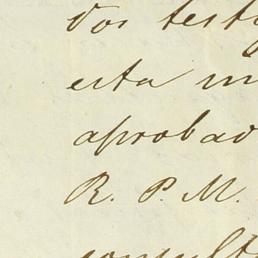 dos testi
esta m
aprobad
R. P. M.
consult